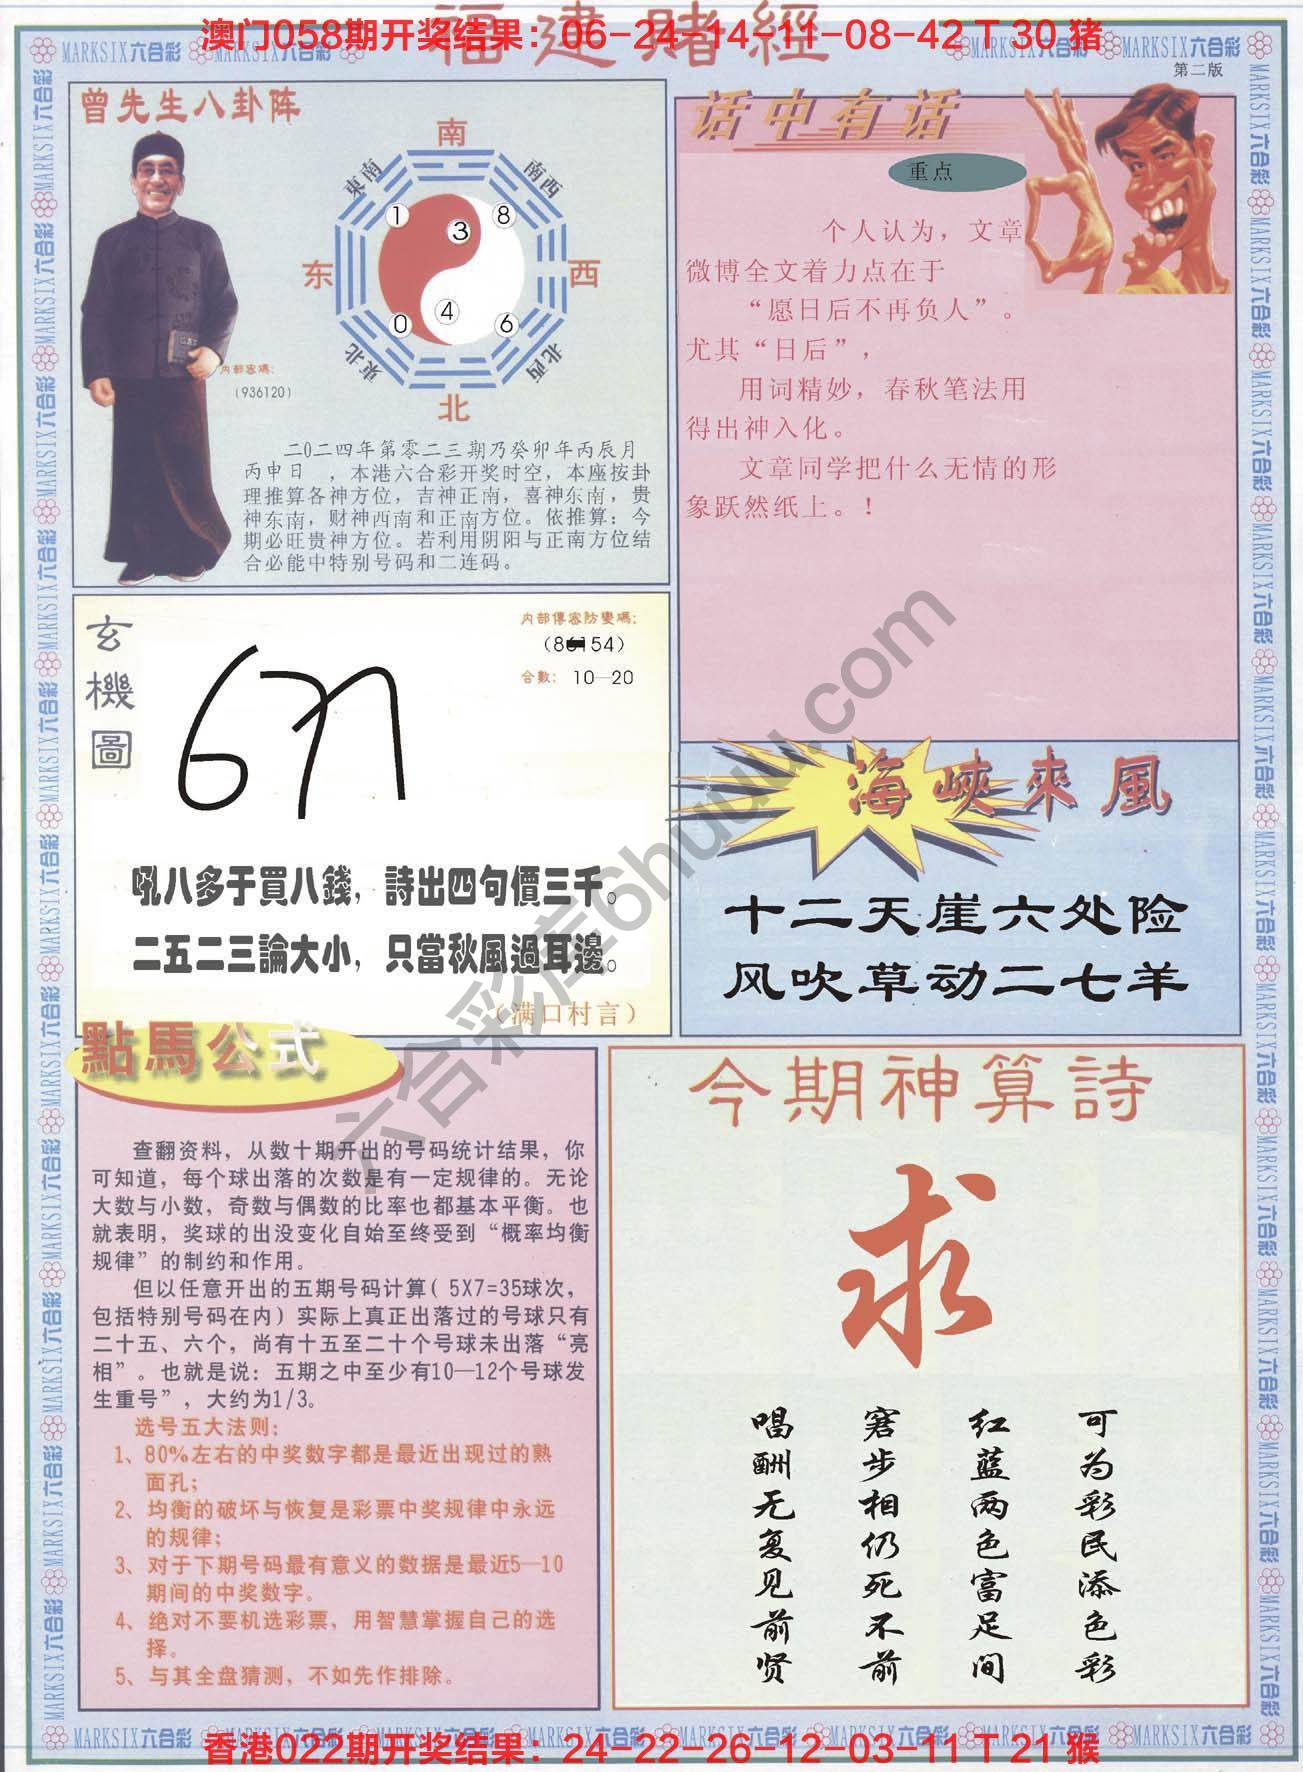 澳门058期开奖结果：06-24-14-11-08-42 T 30 猪
福建赌經
MARKSIX六合彩
第二版
曾先生八卦阵
南
東南
南西
1
8
3
东
西
4
0
6
東北
北西
北
内部密碼：
（936120）
二0二四年第零二三期乃癸卯年丙辰月
丙申日 ，本港六合彩开奖时空，本座按卦
理推算各神方位，吉神正南，喜神东南，贵
神东南，财神西南和正南方位。依推算：今
期必旺贵神方位。若利用阴阳与正南方位结
合必能中特别号码和二连码。
话中有话
重点
个人认为，文章
微博全文着力点在于
“愿日后不再负人”。
尤其“日后”，
用词精妙，春秋笔法用
得出神入化。
文章同学把什么无情的形
象跃然纸上。！
玄機圖
内部傳密防變碼：
合數： 10—20
吼八多于買八錢，詩出四句價三千。
二五二三論大小，只當秋風過耳邊。
（满口村言）
海峽來風
十二天崖六处险
风吹草动二七羊
點馬公式
查翻资料，从数十期开出的号码统计结果，你
可知道，每个球出落的次数是有一定规律的。无论
大数与小数，奇数与偶数的比率也都基本平衡。也
就表明，奖球的出没变化自始至终受到“概率均衡
规律”的制约和作用。
但以任意开出的五期号码计算（5X7=35球次，
包括特别号码在内）实际上真正出落过的号球只有
二十五、六个，尚有十五至二十个号球未出落“亮
相”。也就是说：五期之中至少有10—12个号球发
生重号”，大约为1/3。
选号五大法则：
1、80%左右的中奖数字都是最近出现过的熟
面孔；
2、均衡的破坏与恢复是彩票中奖规律中永远
的规律；
3、对于下期号码最有意义的数据是最近5—10
期间的中奖数字。
4、绝对不要机选彩票，用智慧掌握自己的选
择。
5、与其全盘猜测，不如先作排除。
今期神算詩
求
可为彩民添色彩
红蓝两色富足间
窘步相仍死不前
唱酬无复见前贤
六合彩库6huuu.com
香港022期开奖结果：24-22-26-12-03-11 T 21 猴